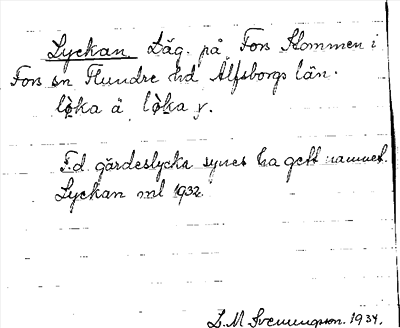 Lyckan. Läg. på Fors Stommen i
Fors sn Flundre hd Älfsborgs län.
lo̊ka ä lo̊ka v.
F.d. gärdeslycka synes ha gett namnet.
Lyckan ml 1932
L. M. Svenungsson. 1934.